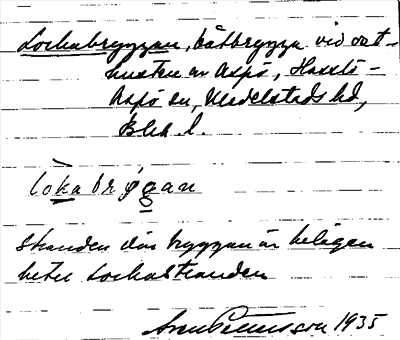 Lockabryggan, båtbrygga vid ost-
kusten av Aspö, Hasslö-
Aspö sn, Medelstads hd,
Blek. l.
lòkabrygan
Stranden där bryggan är belägen
heter Lockastranden
Sven Petersson 1935